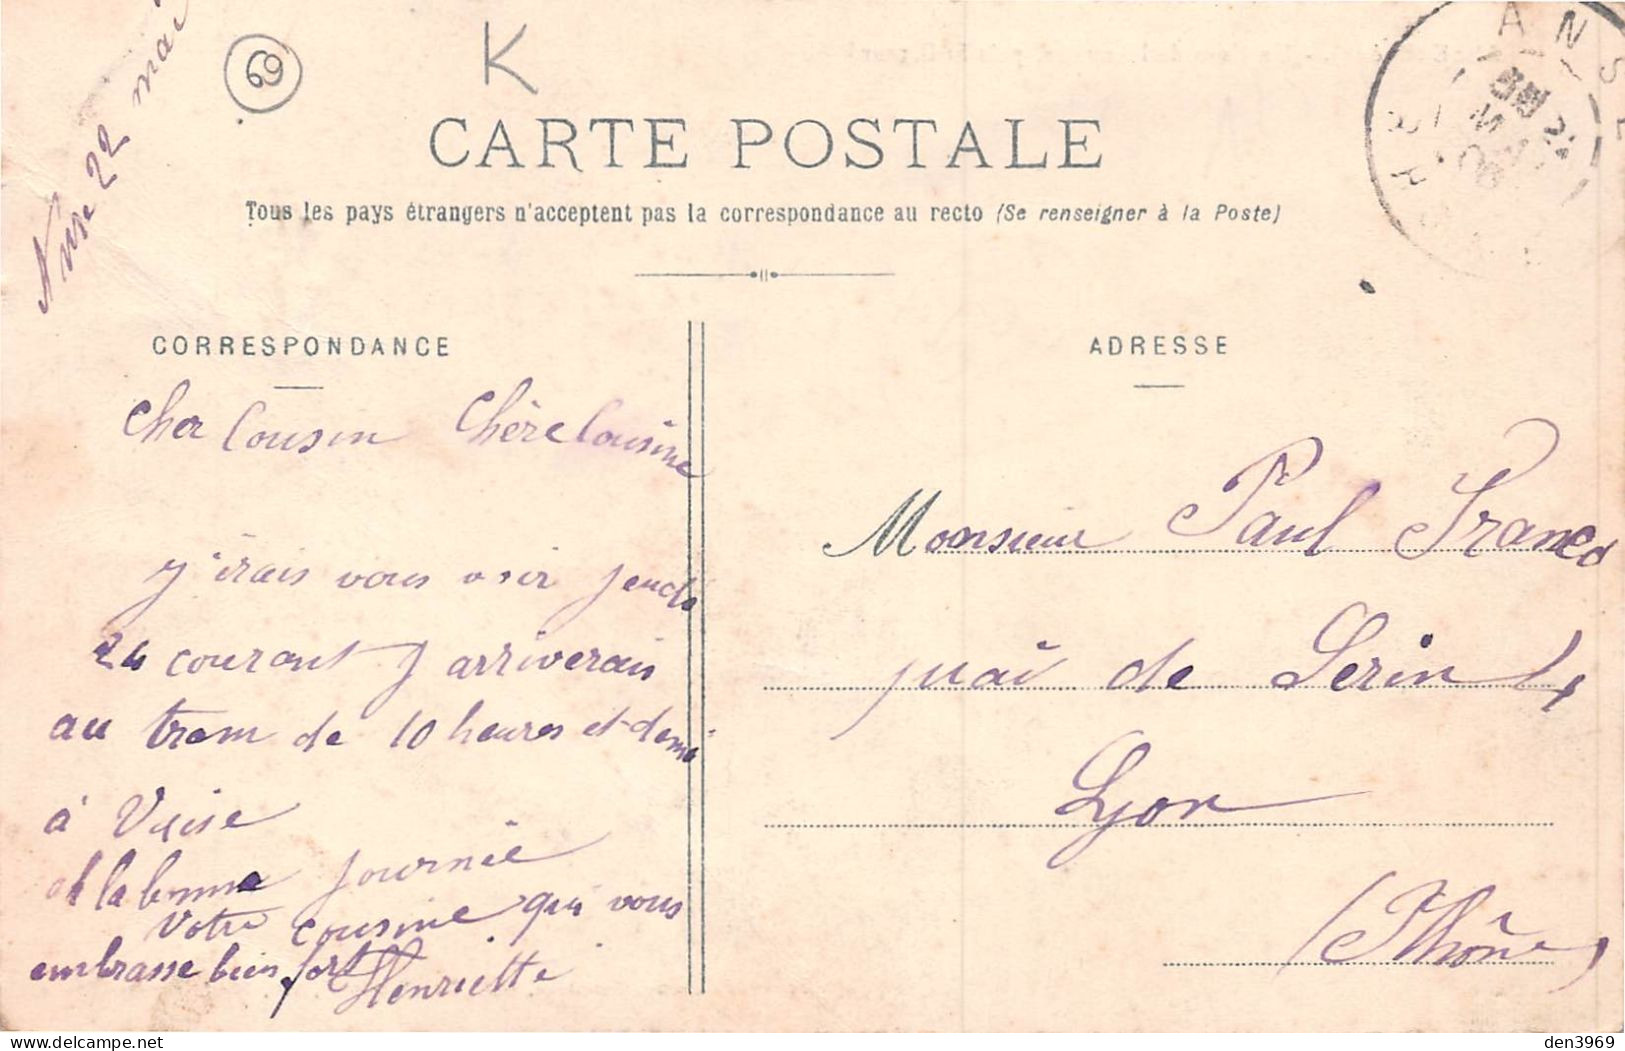 Anse 22 mai
69
K
CARTE POSTALE
Tous les pays étrangers n'acceptent pas la correspondance au recto (Se renseigner à la Poste)
ANSE
RH
CORRESPONDANCE
Cher Cousin Chère Cousine
j'irais vous voir jeudi
24 courant J arriverais
au tram de 10 heures et demi
à Vaise
oh la bonne journée
Votre cousine qui vous
embrasse bien fort
Henriette
ADRESSE
Monsieur Paul
quai de Serin
Lyon
(Rhône)
den3969